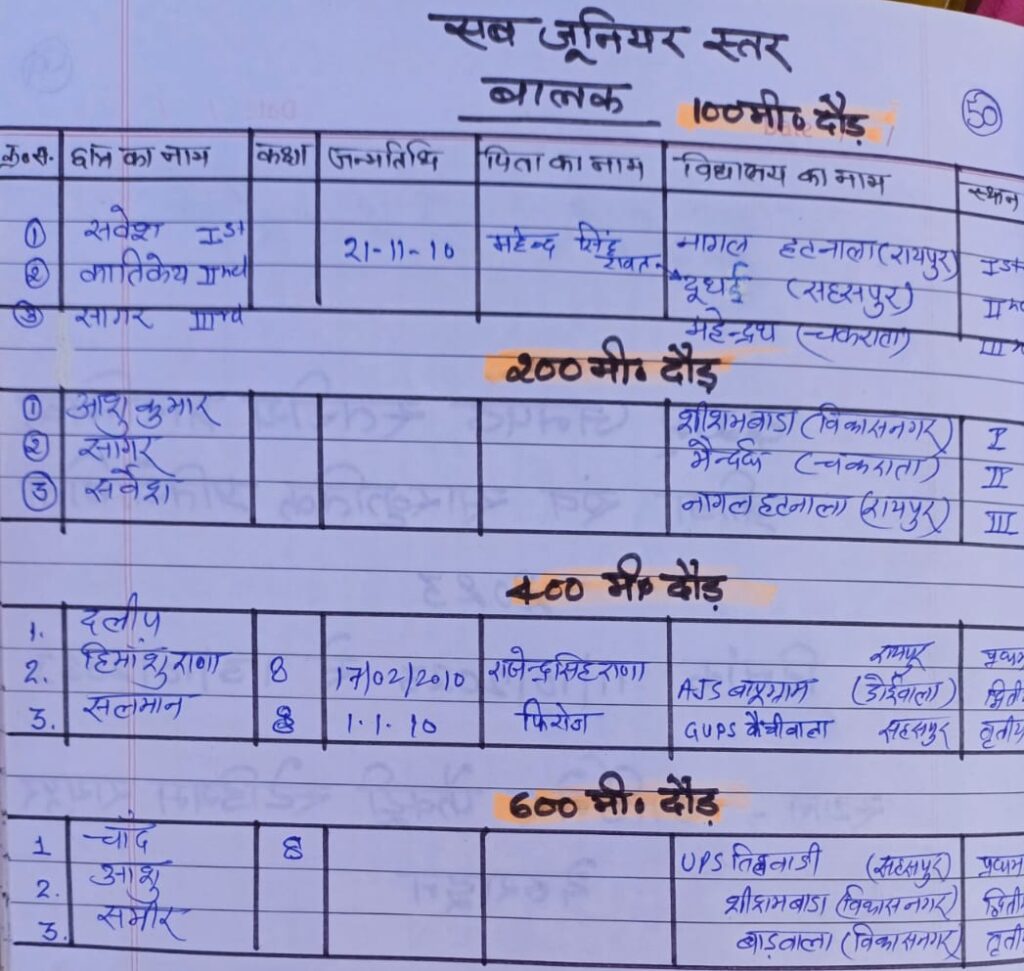 सब जूनियर स्तर
बालक
100मी० दौड़
50
क्र०स. छात्र का नाम कक्षा जन्मतिथि पिता का नाम विद्यालय का नाम स्थान
① सर्वेश Ist 21-11-10 महेन्द्र सिंह रावत नागल हटनाला (रायपुर) Ist
② कार्तिकेय IInd दूधई (सहसपुर) IInd
③ सागर IIIrd (चकराता) III
200मी० दौड़
① आशु कुमार शीशमबाडा (विकासनगर) I
② सागर (चकराता) II
③ सर्वेश नागल हटनाला (रायपुर) III
400 मी० दौड़
1. दलीप रायपुर प्रथम
2. हिमांशु राणा 8 17/02/2010 राजेन्द्र सिंह राणा AJS बापूग्राम (डोईवाला) द्विती
3. सलमान 8 1.1.10 फिरोज GUPS कैंचीवाला सहसपुर तृतीय
600 मी० दौड़
1 चाँद 8 UPS (सहसपुर) प्रथम
2. आशु शीशमबाडा (विकासनगर) द्विती
3. समीर बाड़वाला (विकासनगर) तृती